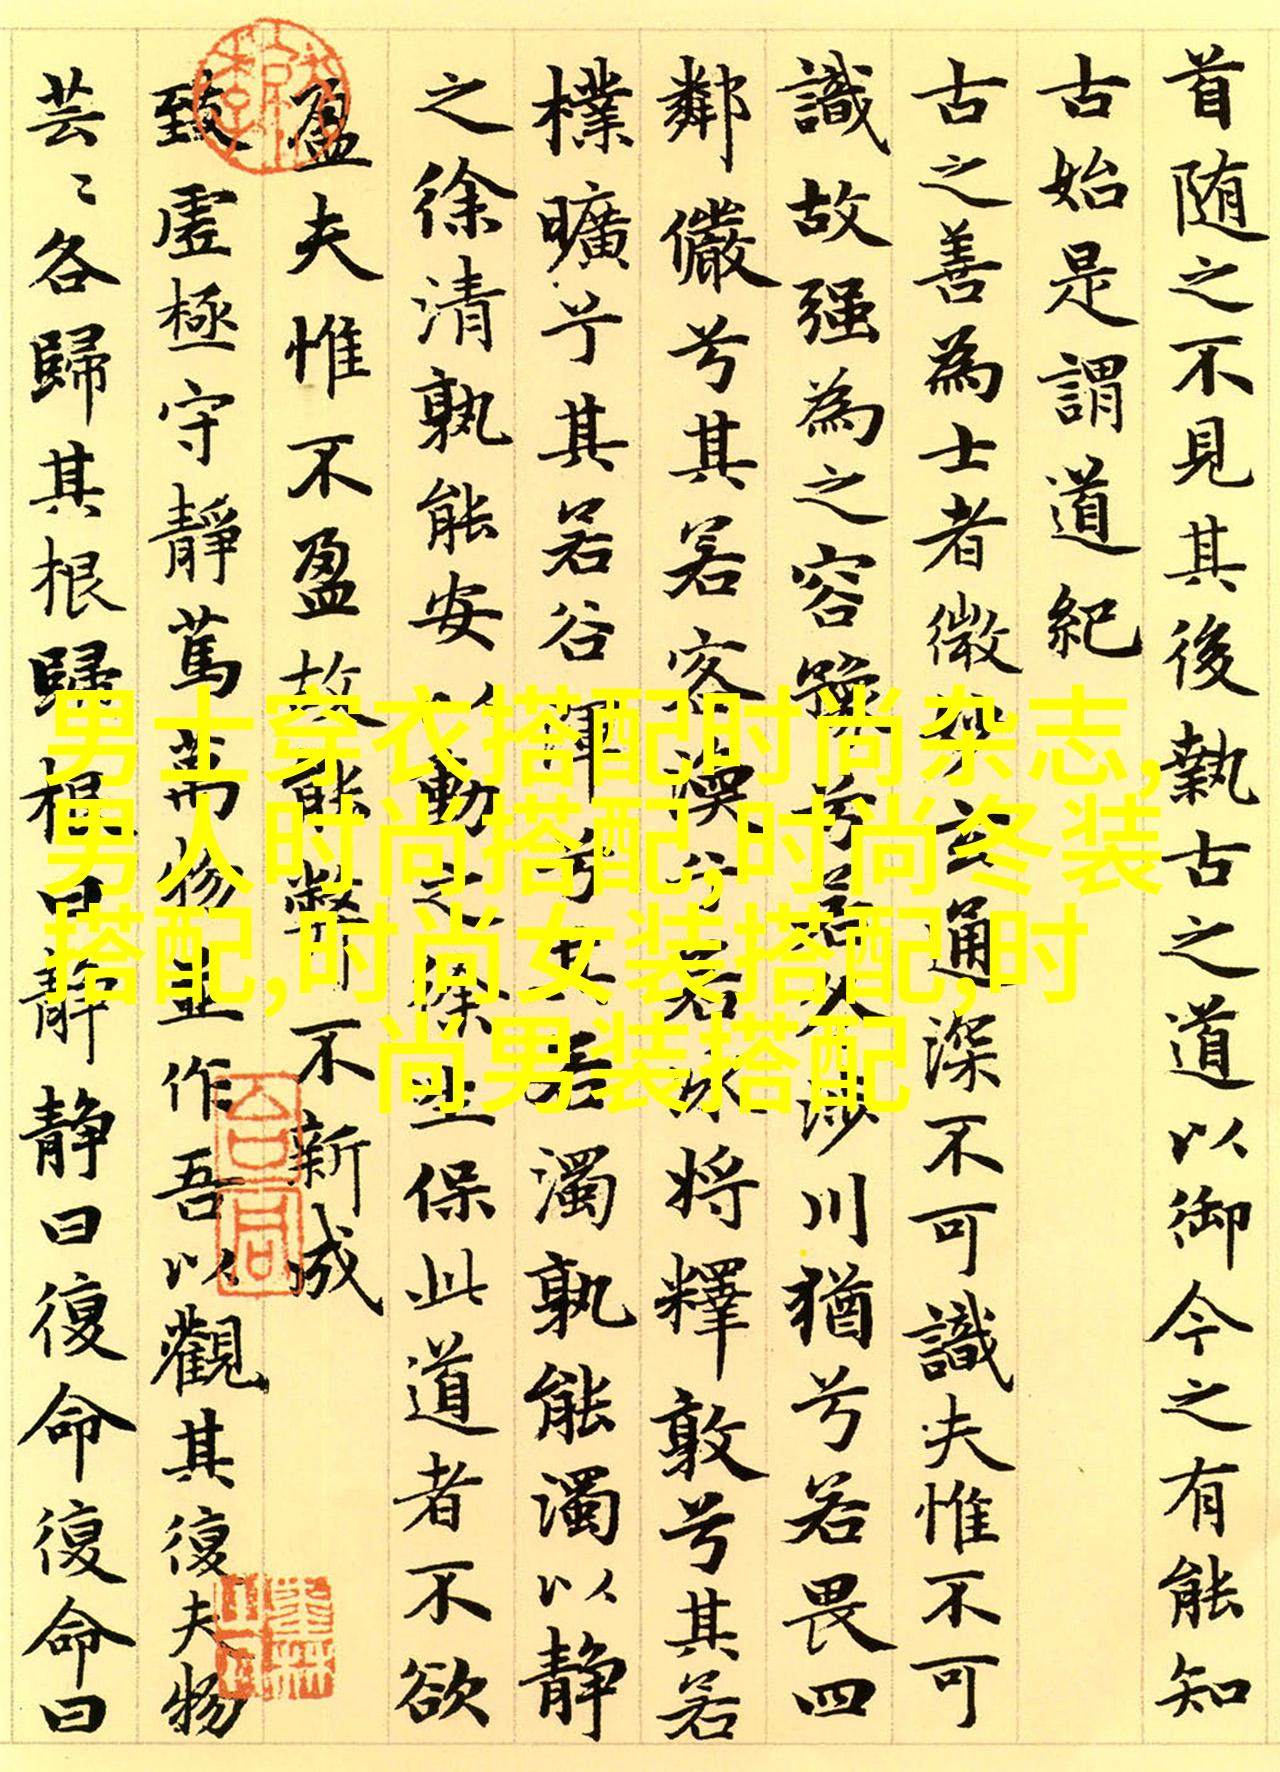 首随之不見其後執古之道以御今之有能知
古始是謂道紀
古之善為士者微妙玄通深不可識夫惟不可
識故强為之容豫兮若冬涉川猶兮若畏四
鄰儼兮其若客渙兮若冰將釋敦兮其若
樸曠兮其若谷渾兮其若濁孰能濁以静
之徐清孰能安以動之徐生保此道者不欲
盈夫惟不盈故能弊不新成
致虛極守靜篤萬物並作吾以觀其復夫物
芸〻各歸其根歸根曰静静曰復命復命曰
男士穿衣搭配,时尚杂志,
男人时尚搭配,时尚冬装
搭配,时尚女装搭配,时
尚男装搭配